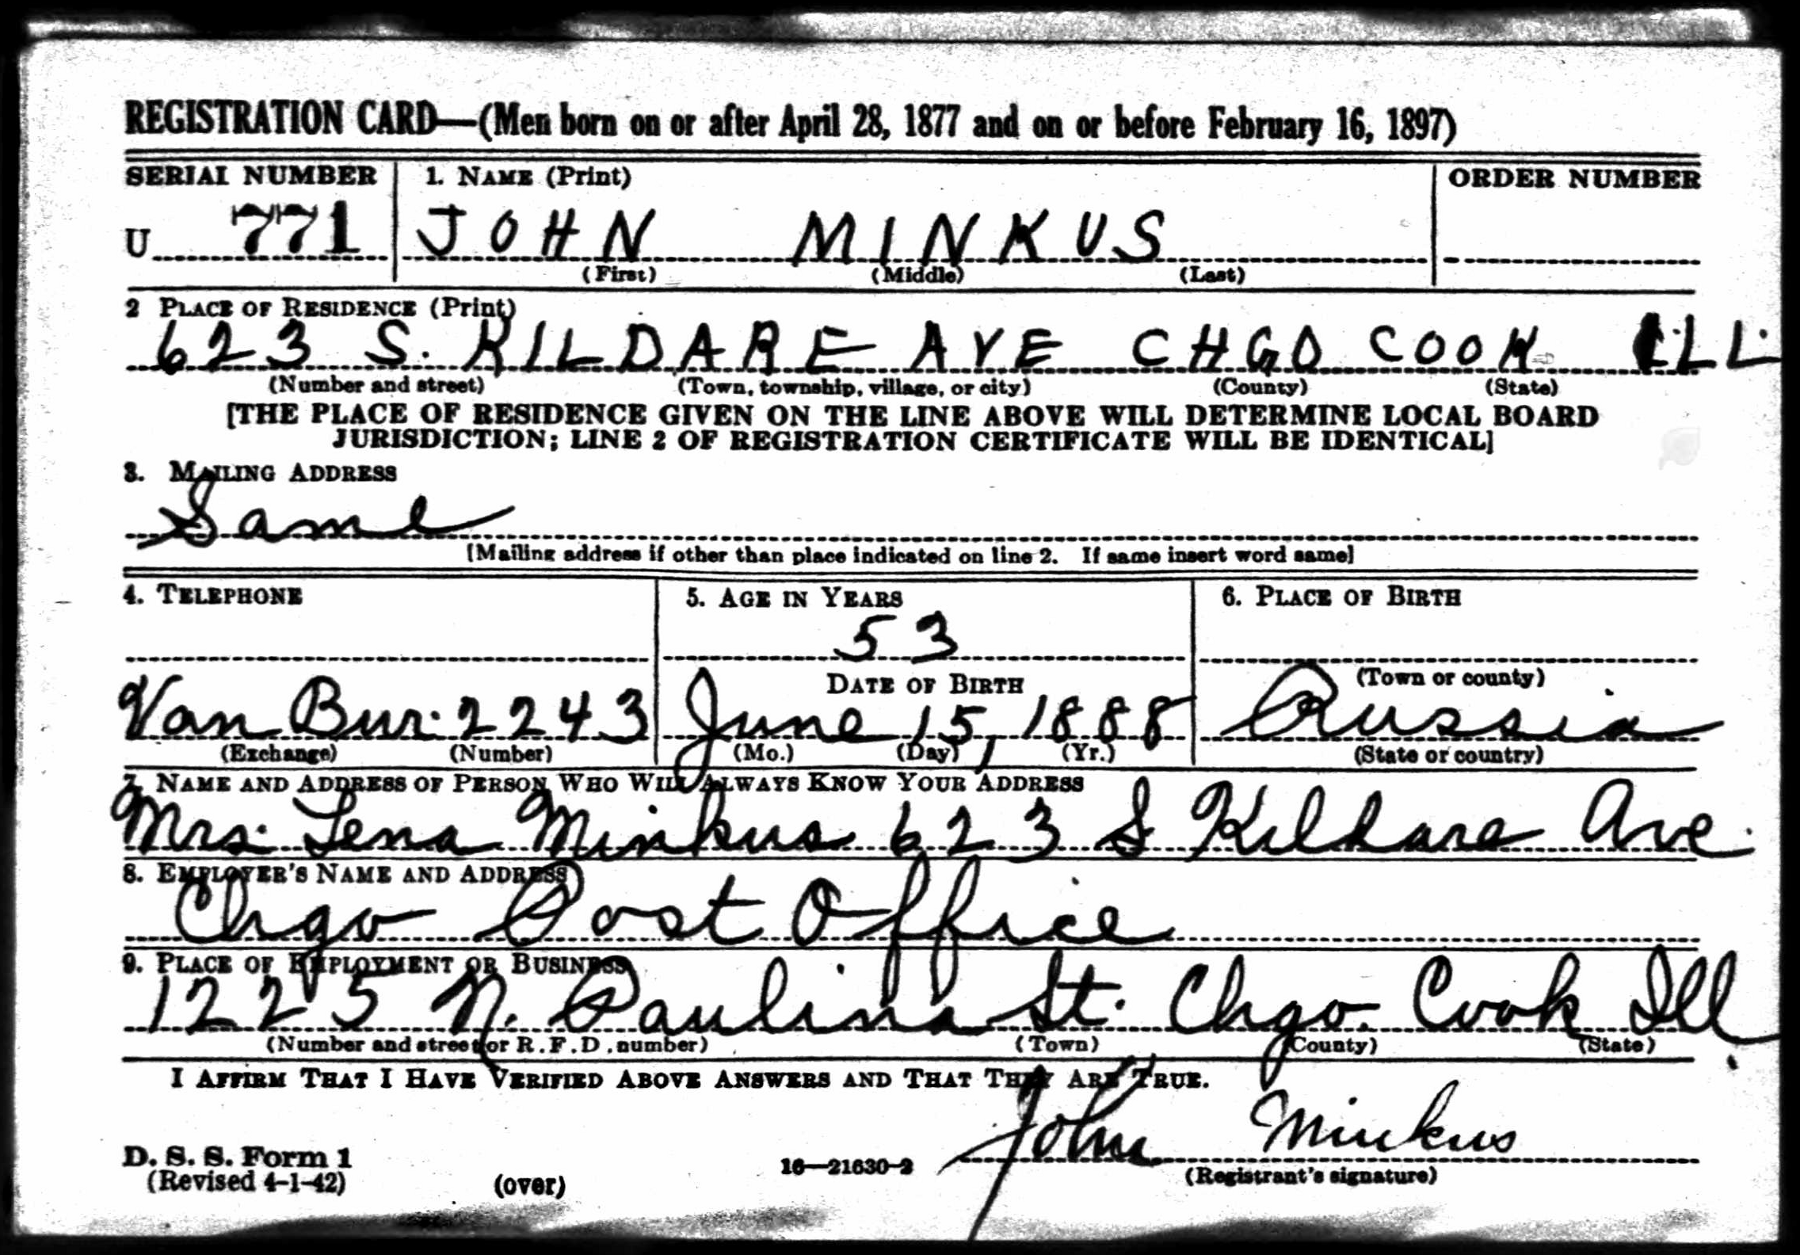 REGISTRATION CARD—(Men born on or after April 28, 1877 and on or before February 16, 1897)
SERIAL NUMBER 1. NAME (Print) ORDER NUMBER
U 771 JOHN MINKUS
(First) (Middle) (Last)
2 PLACE OF RESIDENCE (Print)
623 S. KILDARE AVE CHGO COOK ILL.
(Number and street) (Town, township, village, or city) (County) (State)
[THE PLACE OF RESIDENCE GIVEN ON THE LINE ABOVE WILL DETERMINE LOCAL BOARD
JURISDICTION; LINE 2 OF REGISTRATION CERTIFICATE WILL BE IDENTICAL]
3. MAILING ADDRESS
Same
[Mailing address if other than place indicated on line 2. If same insert word same]
4. TELEPHONE 5. AGE IN YEARS 6. PLACE OF BIRTH
53
DATE OF BIRTH (Town or county)
Van Bur. 2243 June 15, 1888 Russia
(Exchange) (Number) (Mo.) (Day) (Yr.) (State or country)
7. NAME AND ADDRESS OF PERSON WHO WILL ALWAYS KNOW YOUR ADDRESS
Mrs. Lena Minkus 623 S Kildare Ave.
8. EMPLOYER'S NAME AND ADDRESS
Chgo Post Office
9. PLACE OF EMPLOYMENT OR BUSINESS
1225 N. Paulina St. Chgo. Cook Ill.
(Number and street or R. F. D. number) (Town) (County) (State)
I AFFIRM THAT I HAVE VERIFIED ABOVE ANSWERS AND THAT THEY ARE TRUE.
John Minkus
D. S. S. Form 1
(Revised 4-1-42) (over) 16—21630-2 (Registrant's signature)